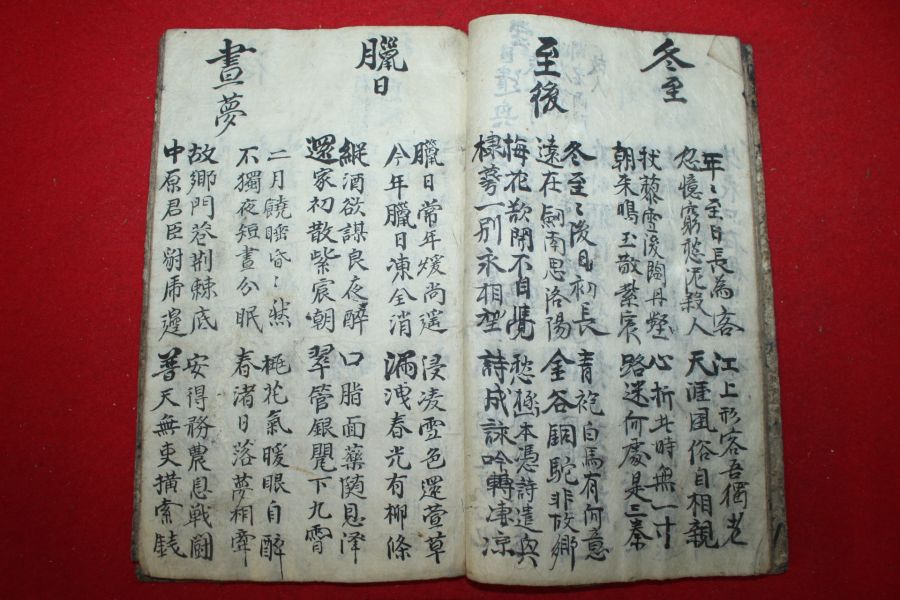 冬至
年〻至日長為客
忽憶窮愁泥殺人
江上形容吾獨老
天涯風俗自相親
杖藜雪後臨丹壑
朝來鳴玉散紫宸
心折此時無一寸
路迷何處是三秦
至後
冬至〻後日初長
遠在劒南思洛陽
青袍白馬有何意
金谷銅駝非故鄉
梅花欲開不自覺
棣萼一別永相望
愁極本憑詩遣興
詩成詠吟轉凄凉
臘日
臘日常年煖尚遙
今年臘日凍全消
浸凌雪色還萱草
漏洩春光有柳條
縱酒欲謀良夜醉
還家初散紫宸朝
口脂面藥隨恩澤
翠管銀甖下九霄
晝夢
二月饒睡昏〻然
不獨夜短晝分眠
桃花氣暖眼自醉
春渚日落夢相牽
故鄉門巷荊棘底
中原君臣豺虎邊
安得務農息戰鬪
普天無吏橫索錢